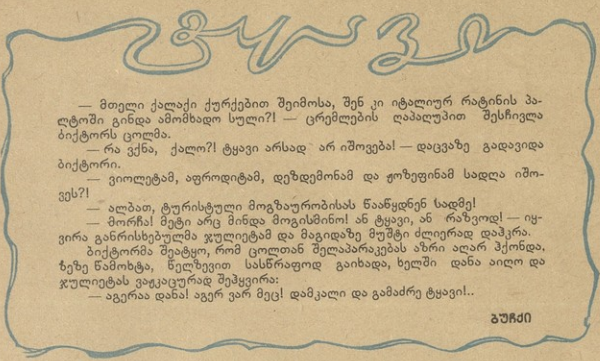 ტყავი
— მთელი ქალაქი ქურქებით შეიმოსა, შენ კი იტალიურ რატინის პა-
ლტოში გინდა ამომხადო სული?! — ცრემლების ღაპაღუპით შესჩივლა
ბიქტორს ცოლმა.
— რა ვქნა, ქალო?! ტყავი არსად არ იშოვება! — დაცვაზე გადავიდა
ბიქტორი.
— ვიოლეტამ, აფროდიტამ, დეზდემონამ და ჟოზეფინამ სადღა იშო-
ვეს?!
— ალბათ, ტურისტული მოგზაურობისას წააწყდნენ სადმე!
— მორჩა! მეტი არც მინდა მოგისმინო! ან ტყავი, ან რაზვოდ! — იყ-
ვირა განრისხებულმა ჯულიეტამ და მაგიდაზე მუშტი ძლიერად დაჰკრა.
ბიქტორმა შეატყო, რომ ცოლთან შელაპარაკებას აზრი აღარ ჰქონდა.
ზეზე წამოხტა, წელზევით სასწრაფოდ გაიხადა, ხელში დანა აიღო და
ჯულიეტას ვაჟკაცურად შეჰყვირა:
— აგერაა დანა! აგერ ვარ მეც! დამკალი და გამაძრე ტყავი!..
ბუჩქი